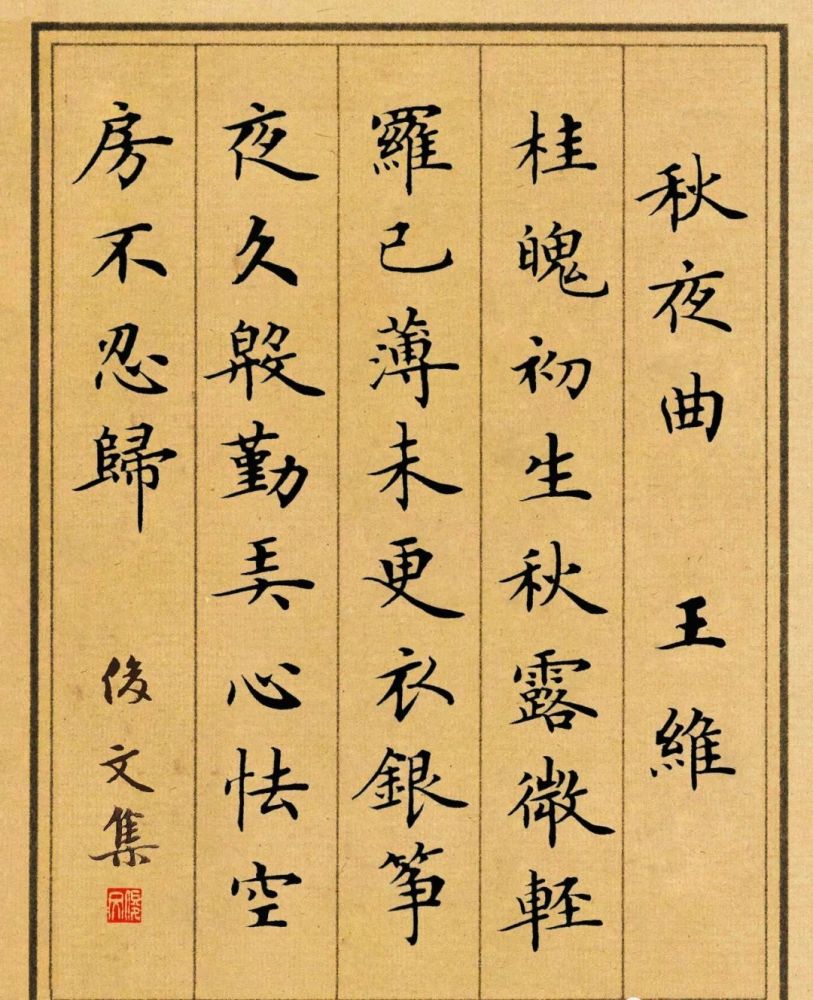 秋夜曲 王維
桂魄初生秋露微軽
羅已薄未更衣銀筝
夜久殷勤弄心怯空
房不忍歸
俊文集